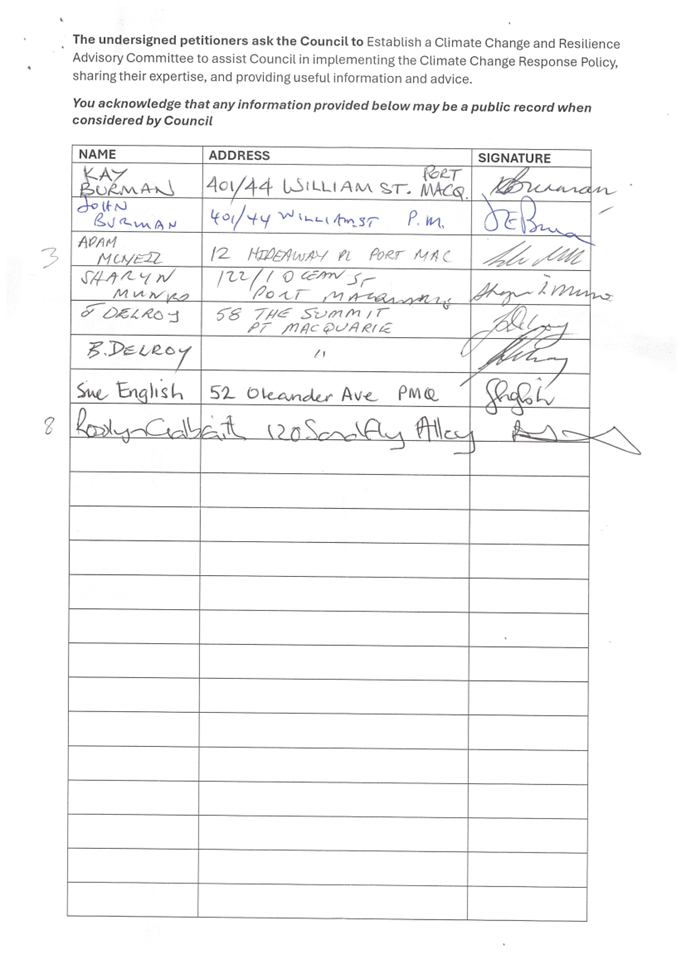 The undersigned petitioners ask the Council to Establish a Climate Change and Resilience
Advisory Committee to assist Council in implementing the Climate Change Response Policy,
sharing their expertise, and providing useful information and advice.
You acknowledge that any information provided below may be a public record when
considered by Council
NAME ADDRESS SIGNATURE
KAY BURMAN 401/44 WILLIAM ST. PORT MACQ.
JOHN BURMAN 401/44 WILLIAM ST P.M. JEBurman
3 ADAM MCNEILL 12 HIDEAWAY PL PORT MAC
SHARYN MUNRO 122/1 OCEAN ST PORT MACQUARIE
J DELROY 58 THE SUMMIT PT MACQUARIE
B. DELROY "
Sue English 52 Oleander Ave PMQ
8 120 Sandfly Alley